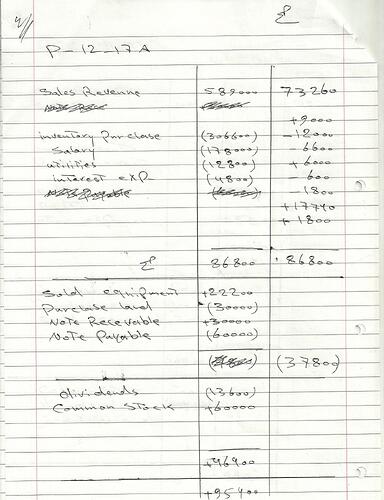 P-12-17A
Sales Revenue 589000 73260
+9000
inventory purchase (306600) -12000
Salary (178000) -6600
utilities (12800) +6000
interest exp. (4800) -600
-1800
+17740
+1800
86800 86800
Sold equipment +22200
Purchase Land (30000)
Note Receivable +30000
Note Payable (60000)
(37800)
dividends (13600)
Common Stock +60000
+46400
+95400